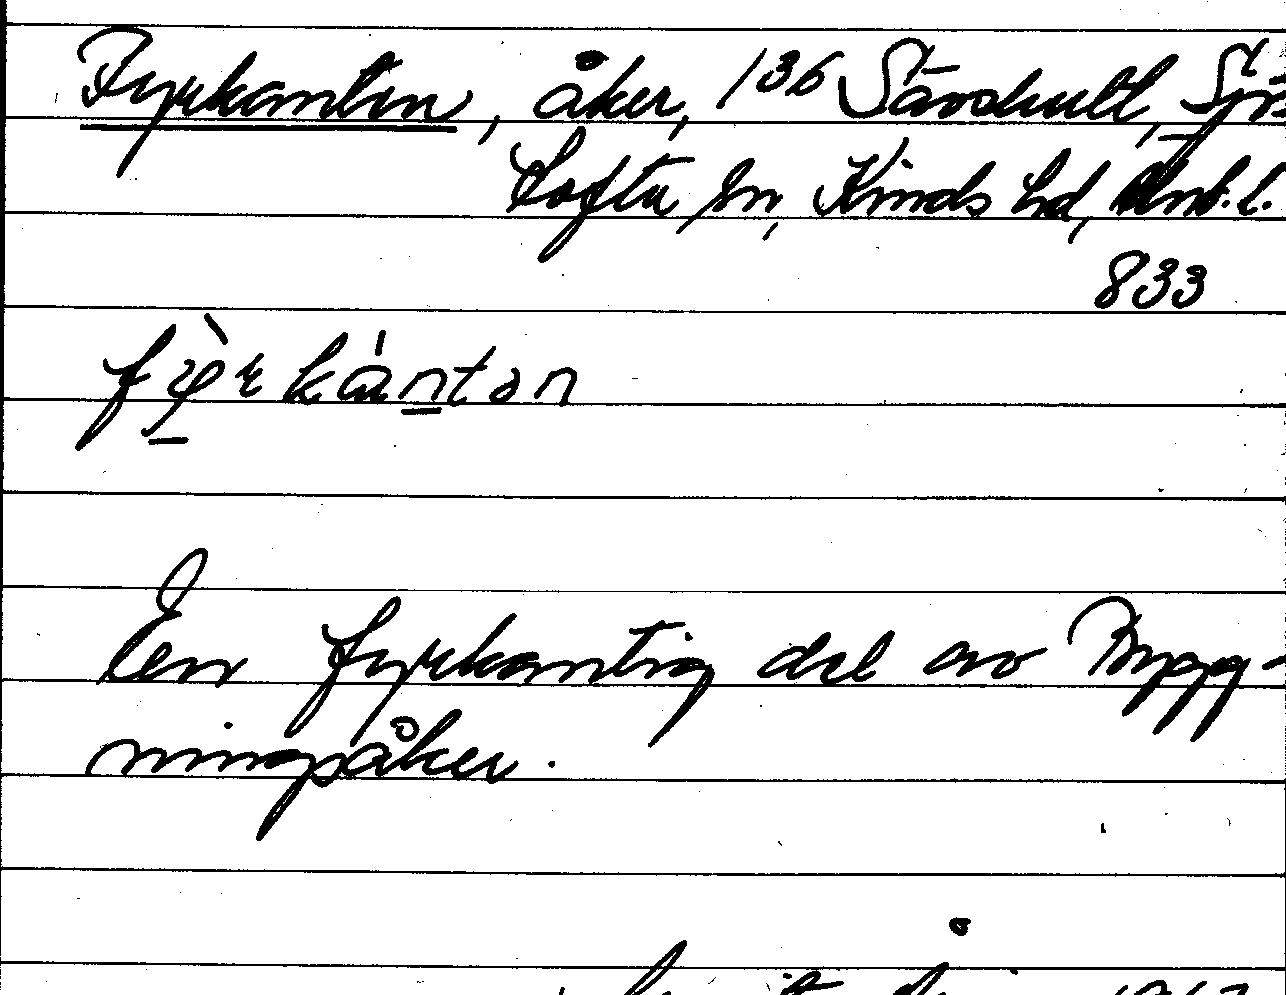 Fyrkanten, åker, 136 Sävshult, Sjö
Tofta sn, Kinds hd, Älvsb. l.
833
fỳrkántən
En fyrkantig del av Bygg-
ningsåker.